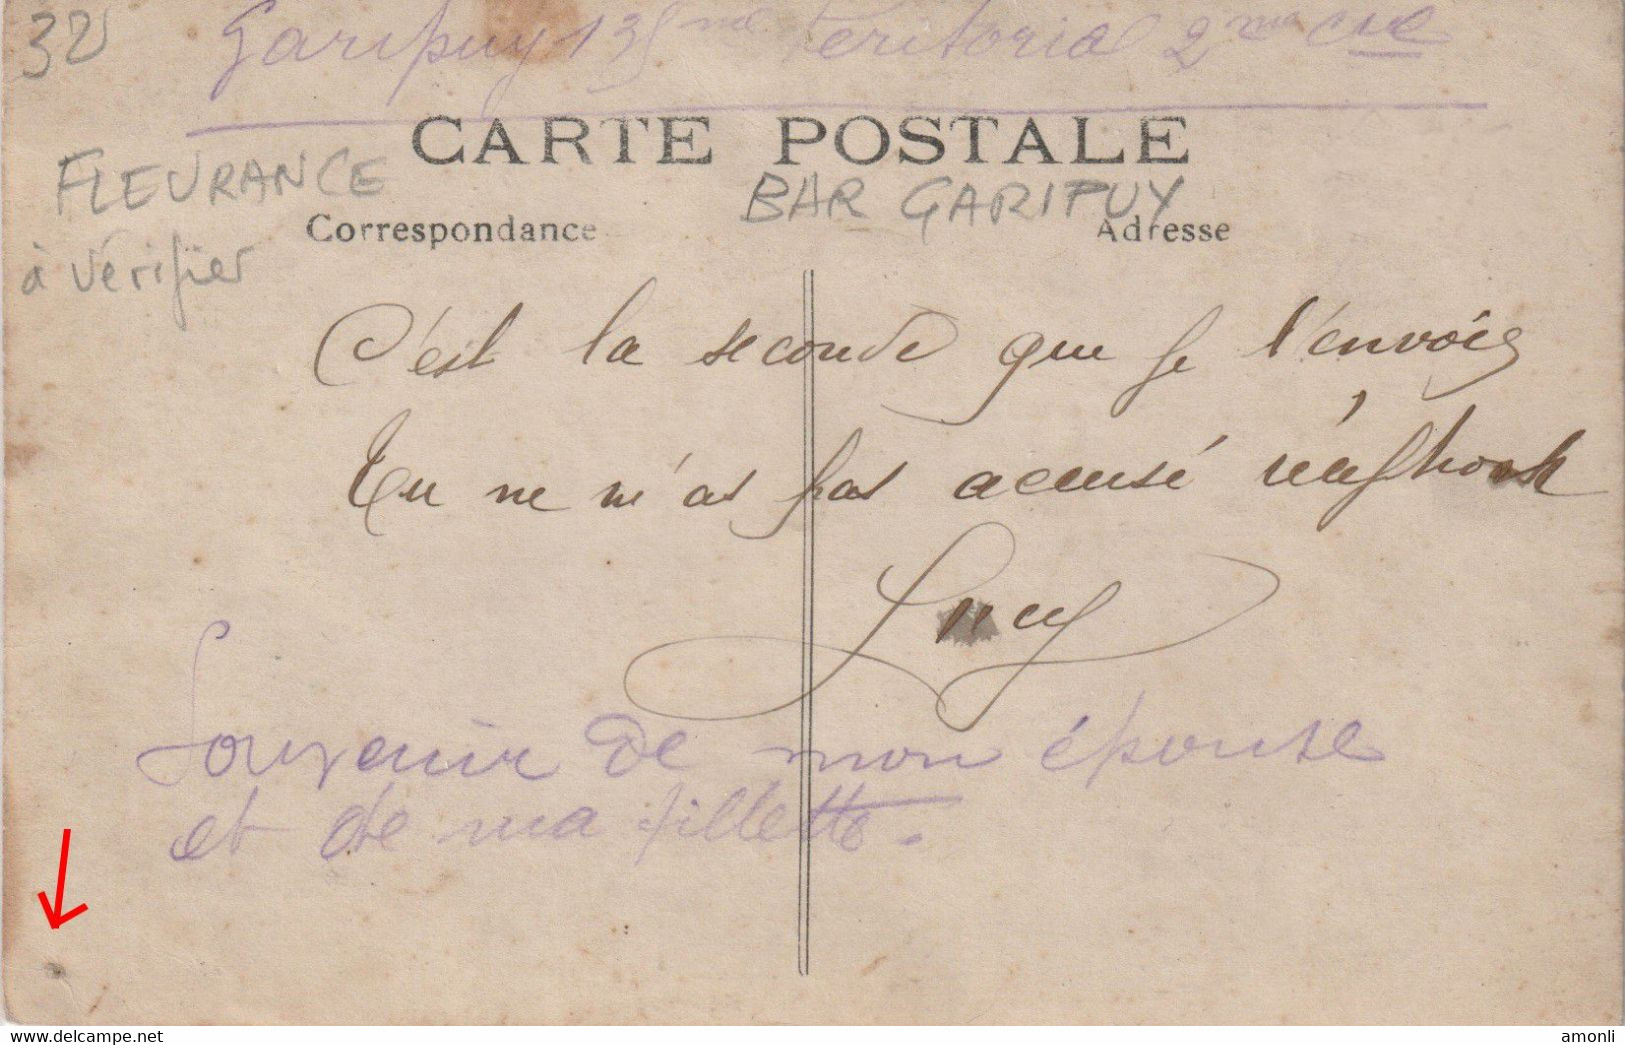 32
Garipuy 135me Teritorial 2me Cie
CARTE POSTALE
FLEURANCE
à vérifier
BAR GARIPUY
Correspondance
Adresse
C'est la seconde que je t'envoies
Tu ne m'as pas accusé
Lucy
Souvenir de mon épouse
et de ma fillette.
amonli
www.delcampe.net